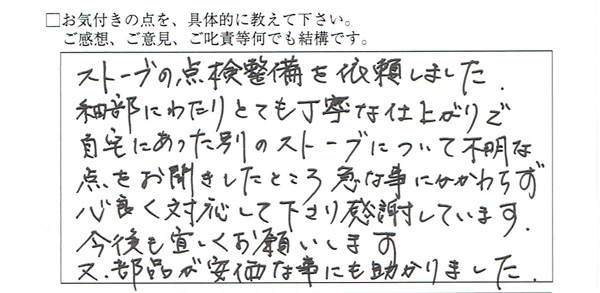 □お気付きの点を、具体的に教えて下さい。
ご感想、ご意見、ご叱責等何でも結構です。
ストーブの点検整備を依頼しました.
細部にわたりとても丁寧な仕上がりで
自宅にあった別のストーブについて不明な
点をお聞きしたところ急な事にかかわらず
心良く対応して下さり感謝しています.
今後も宜しくお願いします
又.部品が安価な事にも助かりました.